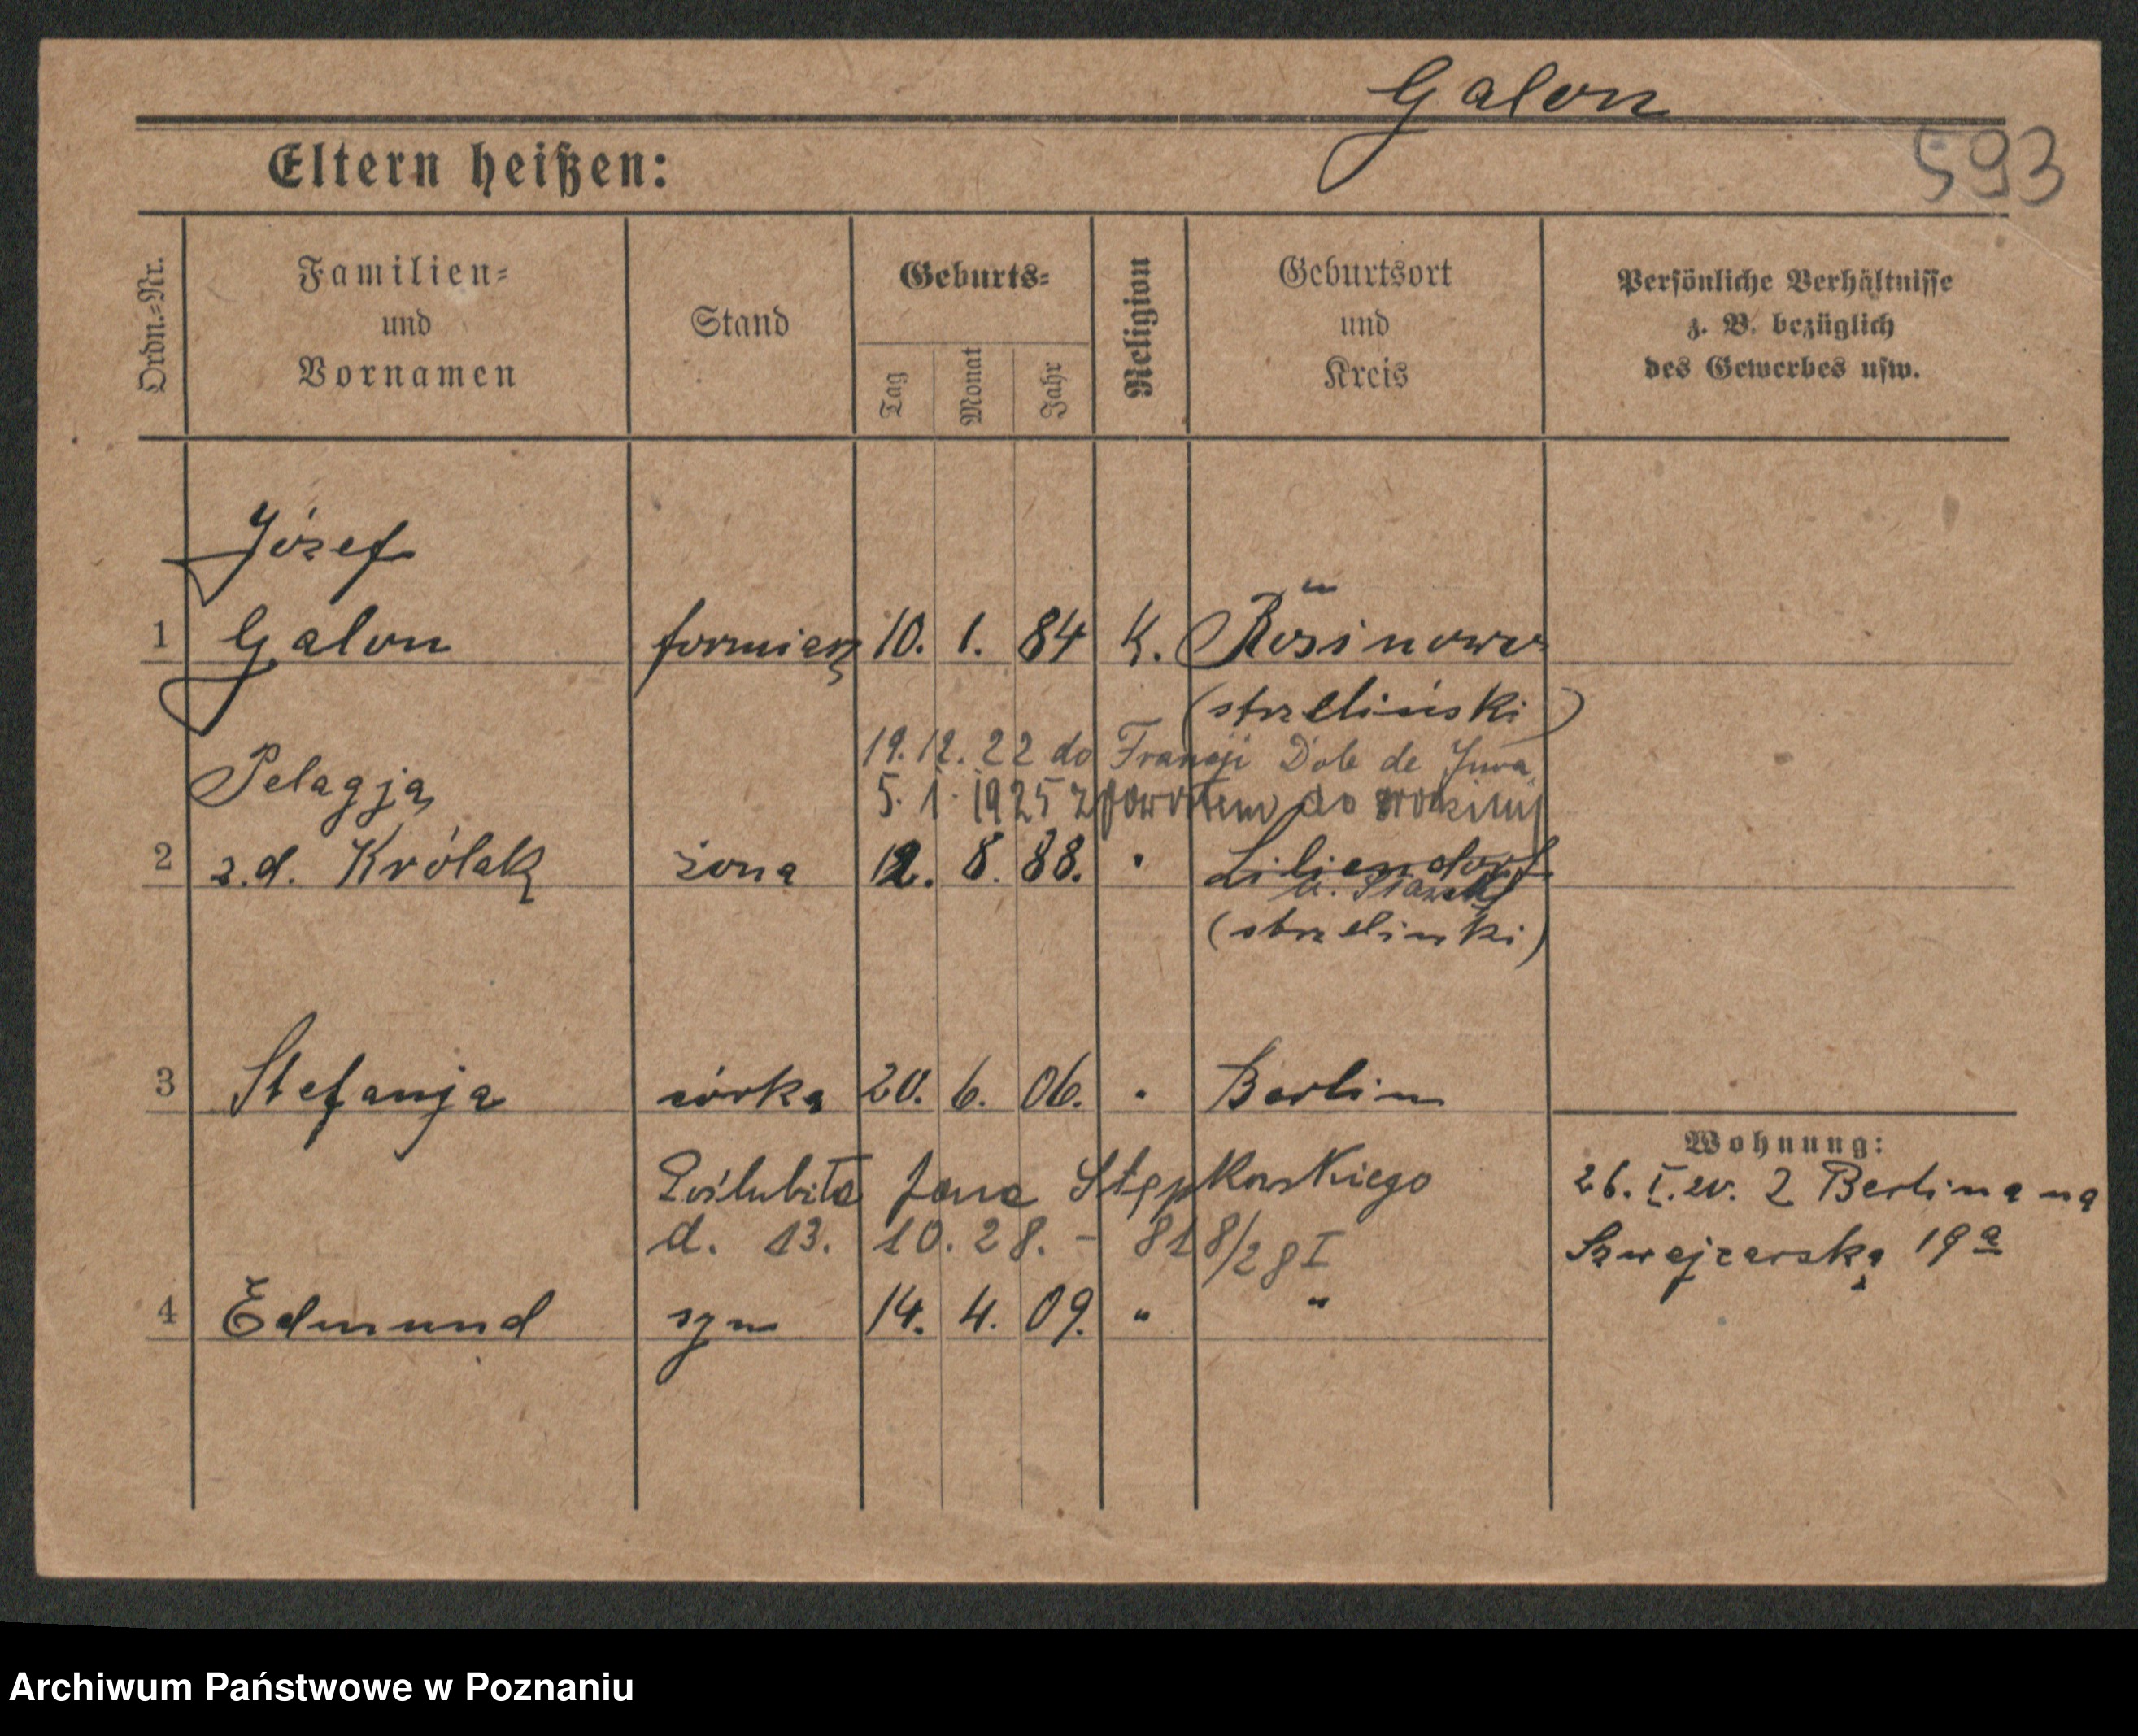 Galon
593
Eltern heißen:
Ordn.-Nr.
Familien-
und
Vornamen
Stand
Geburts-
Tag
Monat
Jahr
Religion
Geburtsort
und
Kreis
Persönliche Verhältnisse
z. B. bezüglich
des Gewerbes usw.
Józef
1 Galon formierz 10. 1. 84 K.
(strzeliński)
19.12.22 do Francji Dole de Jura
Pelagja
5.1.1925 z powrotem do
2 z.d. Królak żona 12. 8. 88. " Liliendorf
(strzelinki)
3 Stefanja córka 20. 6. 06. " Berlin
Wohnung:
Poślubiła Jana Stępkowskiego
d. 13. 10. 28. - 818/28 I
26. I. 20. z Berlina na
Szwajcarską 19a
4 Edmund syn 14. 4. 09. " "
Archiwum Państwowe w Poznaniu